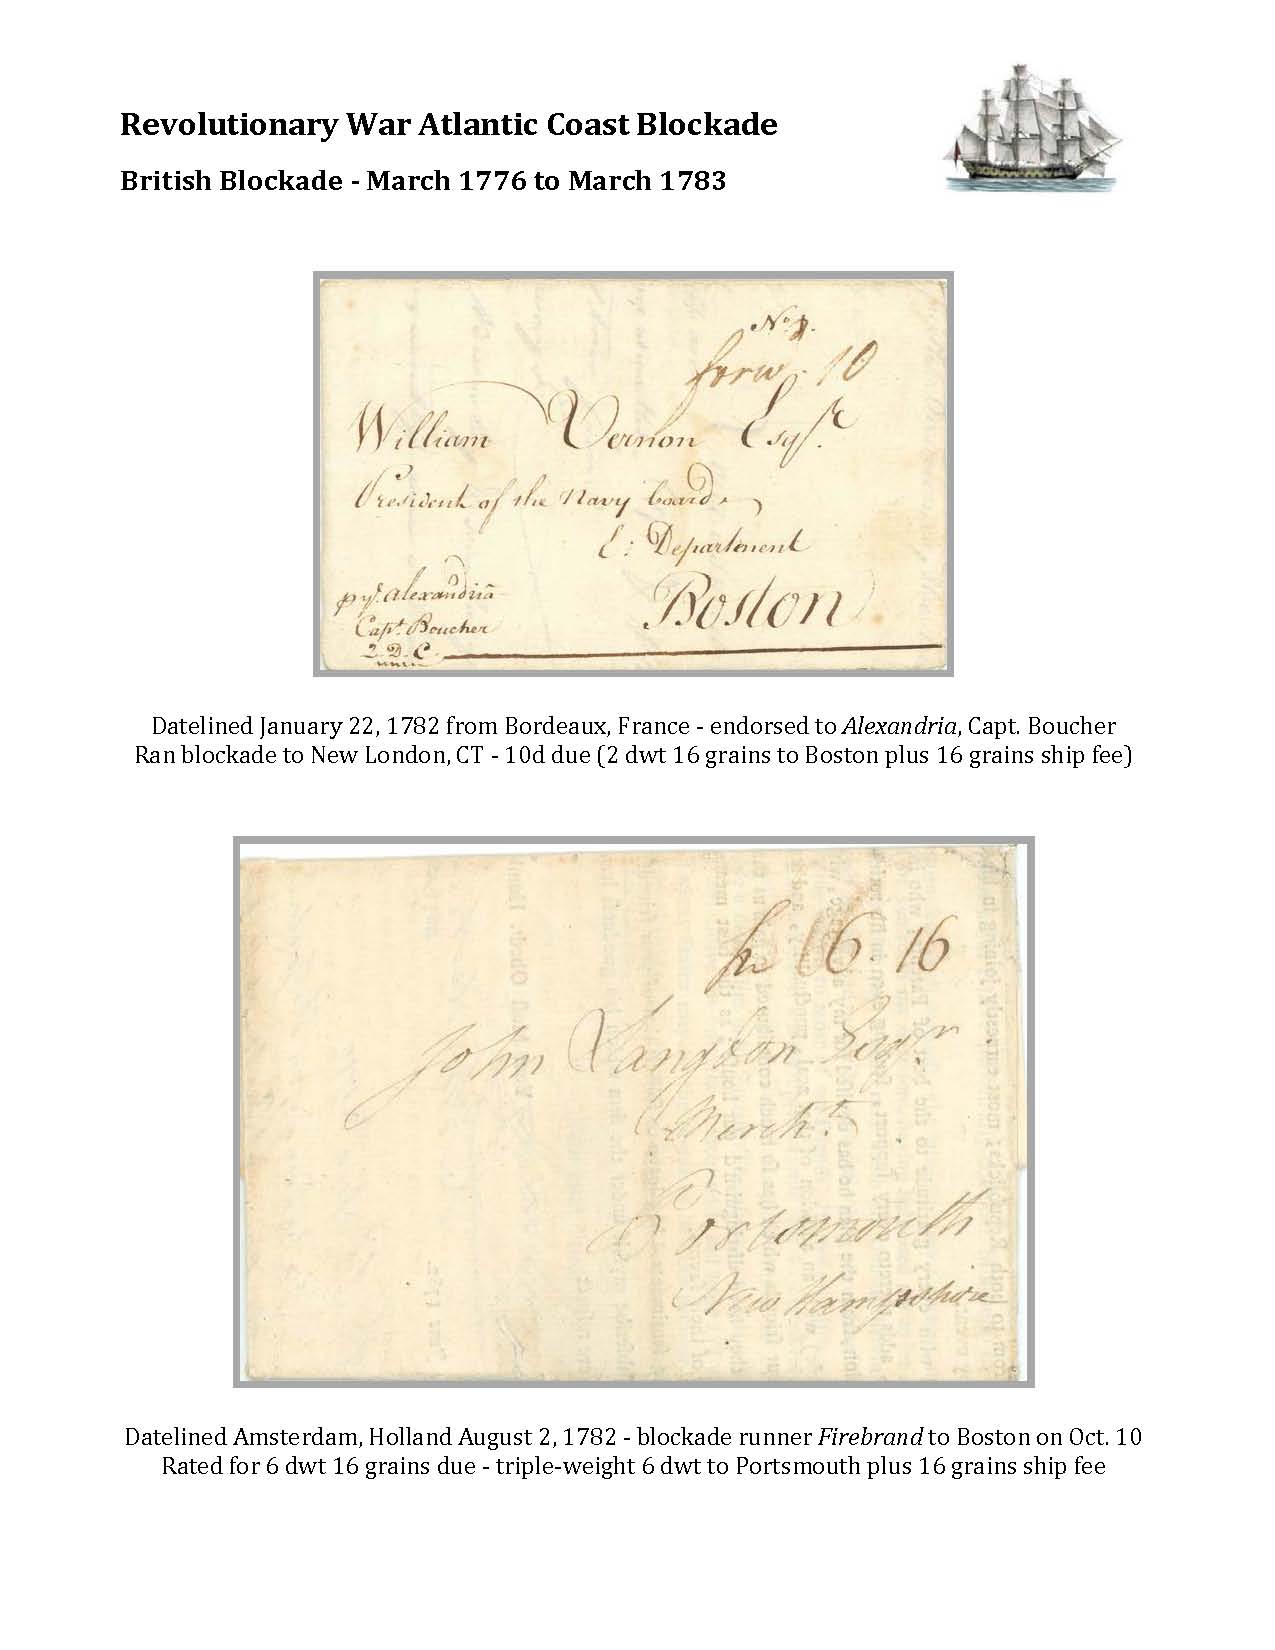 Revolutionary War Atlantic Coast Blockade
British Blockade - March 1776 to March 1783
forw. 10
William Vernon Esqr.
President of the Navy board
E: Department
Boston
pr. Alexandria
Capt. Boucher
2. D. C.
Datelined January 22, 1782 from Bordeaux, France - endorsed to Alexandria, Capt. Boucher
Ran blockade to New London, CT - 10d due (2 dwt 16 grains to Boston plus 16 grains ship fee)
6.16
John Langdon Esqr
Mercht.
Portsmouth
New Hampshire
Datelined Amsterdam, Holland August 2, 1782 - blockade runner Firebrand to Boston on Oct. 10
Rated for 6 dwt 16 grains due - triple-weight 6 dwt to Portsmouth plus 16 grains ship fee